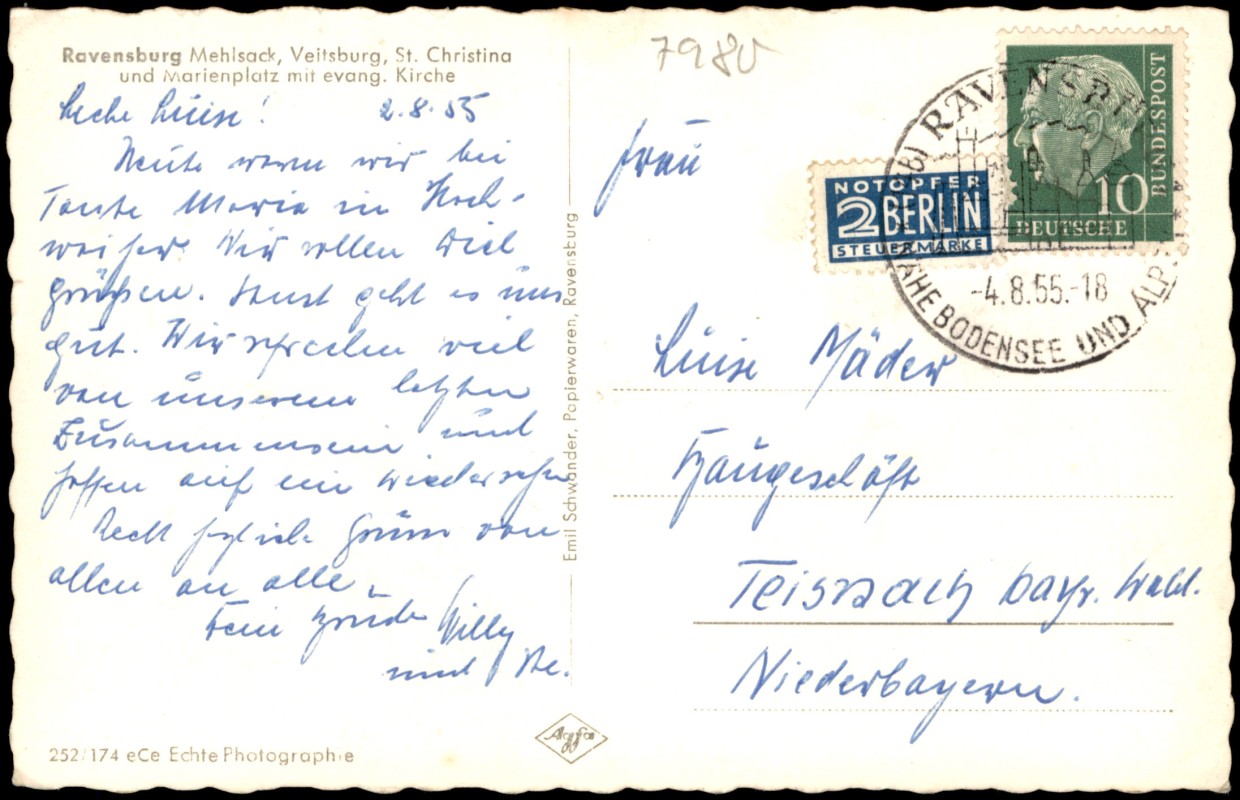 Ravensburg Mehlsack, Veitsburg, St. Christina
und Marienplatz mit evang. Kirche
Liebe Luise! 2.8.55
Heute waren wir bei
Tante Maria in Hoch-
Wir wollen Dich
grüßen. Sonst geht es uns
gut. Wir sprachen viel
von unserem letzten
Zusammensein und
hoffen auf ein Wiedersehn
Recht herzliche Grüsse von
allen an alle.
Dein Bruder Willy
und
252/174 eCe Echte Photographie
Emil Schwander, Papierwaren, Ravensburg
Agfa
7980
NOTOPFER
2 BERLIN
STEUERMARKE
BUNDESPOST
10
DEUTSCHE
RAVENSBURG
-4.8.55.-18
NÄHE BODENSEE UND ALP.
Frau
Luise Mäder
Teisnach bayr. Wald.
Niederbayern.